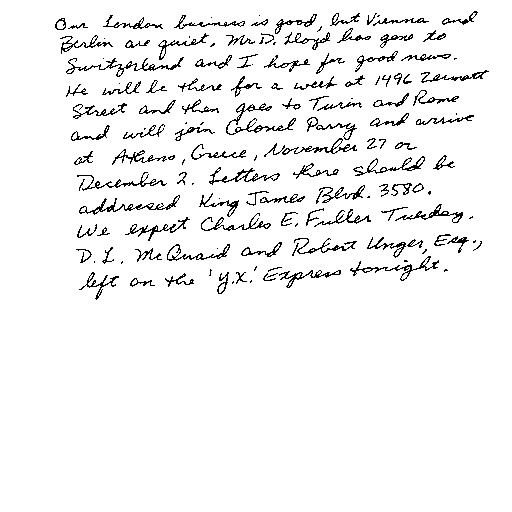 Our London business is good, but Vienna and
Berlin are quiet. Mr. D. Lloyd has gone to
Switzerland and I hope for good news.
He will be there for a week at 1496 Zermatt
Street and then goes to Turin and Rome
and will join Colonel Parry and arrive
at Athens, Greece, November 27 or
December 2. Letters there should be
addressed King James Blvd. 3580.
We expect Charles E. Fuller Tuesday.
D. L. McQuaid and Robert Unger, Esq.,
left on the 'Y.X.' Express tonight.